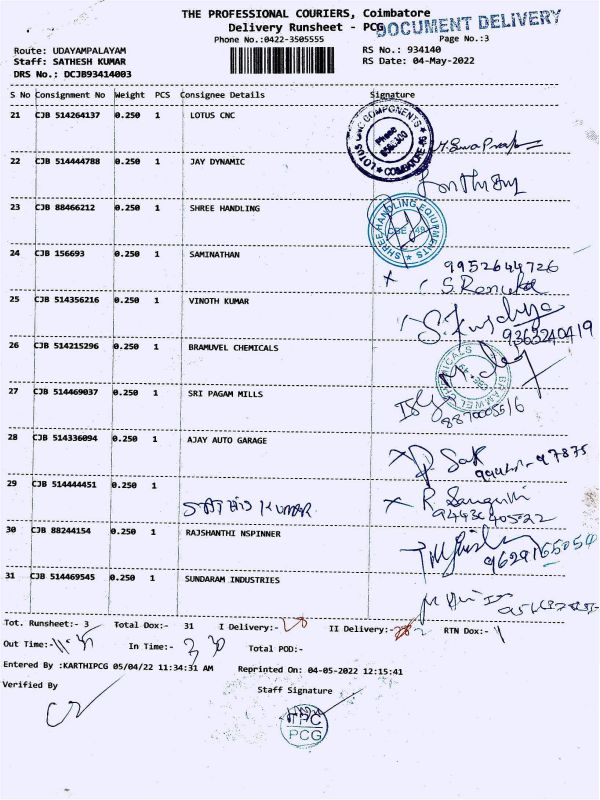 THE PROFESSIONAL COURIERS, Coimbatore
Delivery Runsheet - PCG
DOCUMENT DELIVERY
Phone No.:0422-3505555
Page No.:3
Route: UDAYAMPALAYAM
RS No.: 934140
Staff: SATHESH KUMAR
RS Date: 04-May-2022
DRS No.: DCJB93414003
S No Consignment No Weight PCS Consignee Details Signature
21 CJB 514264137 0.250 1 LOTUS CNC
LOTUS CNC COMPONENTS
Phone
COIMBATORE
22 CJB 514444788 0.250 1 JAY DYNAMIC
23 CJB 88466212 0.250 1 SHREE HANDLING
SHREE HANDLING EQUIPMENTS
24 CJB 156693 0.250 1 SAMINATHAN
9952644726
S. Renuka
25 CJB 514356216 0.250 1 VINOTH KUMAR
9363240419
26 CJB 514215296 0.250 1 BRAMUVEL CHEMICALS
27 CJB 514469037 0.250 1 SRI PAGAM MILLS
8870005516
28 CJB 514336094 0.250 1 AJAY AUTO GARAGE
29 CJB 514444451 0.250 1
SATHIS KUMAR
9443640522
30 CJB 88244154 0.250 1 RAJSHANTHI NSPINNER
31 CJB 514469545 0.250 1 SUNDARAM INDUSTRIES
Tot. Runsheet:- 3 Total Dox:- 31 I Delivery:- 28 II Delivery:- RTN Dox:- 1
Out Time:- In Time:- 3 30 Total POD:-
Entered By :KARTHIPCG 05/04/22 11:34:31 AM Reprinted On: 04-05-2022 12:15:41
Verified By
Staff Signature
TPC
PCG